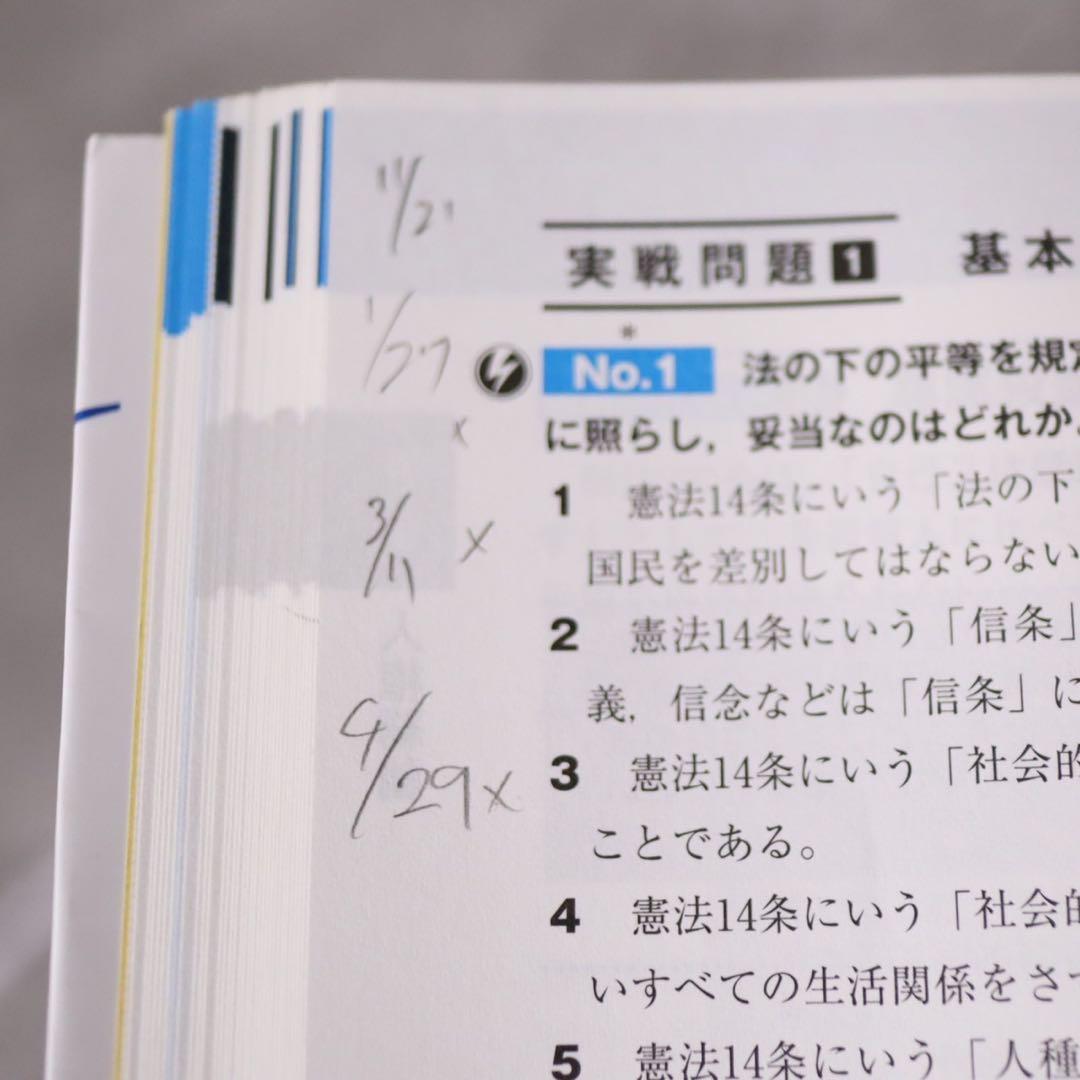 11/21
1/27
×
3/11 ×
4/29 ×
実戦問題1 基本
*
No.1 法の下の平等を規定
に照らし，妥当なのはどれか。
1 憲法14条にいう「法の下
国民を差別してはならない
2 憲法14条にいう「信条」
義，信念などは「信条」に
3 憲法14条にいう「社会的
ことである。
4 憲法14条にいう「社会的
いすべての生活関係をさ
5 憲法14条にいう「人種